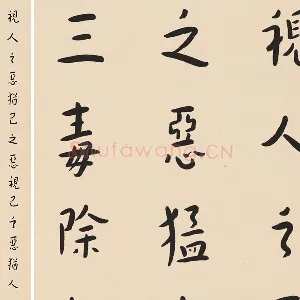 視人之
之惡猛
三毒除
視人之惡猶己之惡視己之惡猶人
Shufawang.CN